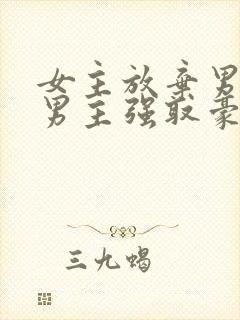 女主放弃男
男主强取豪
三九蝎